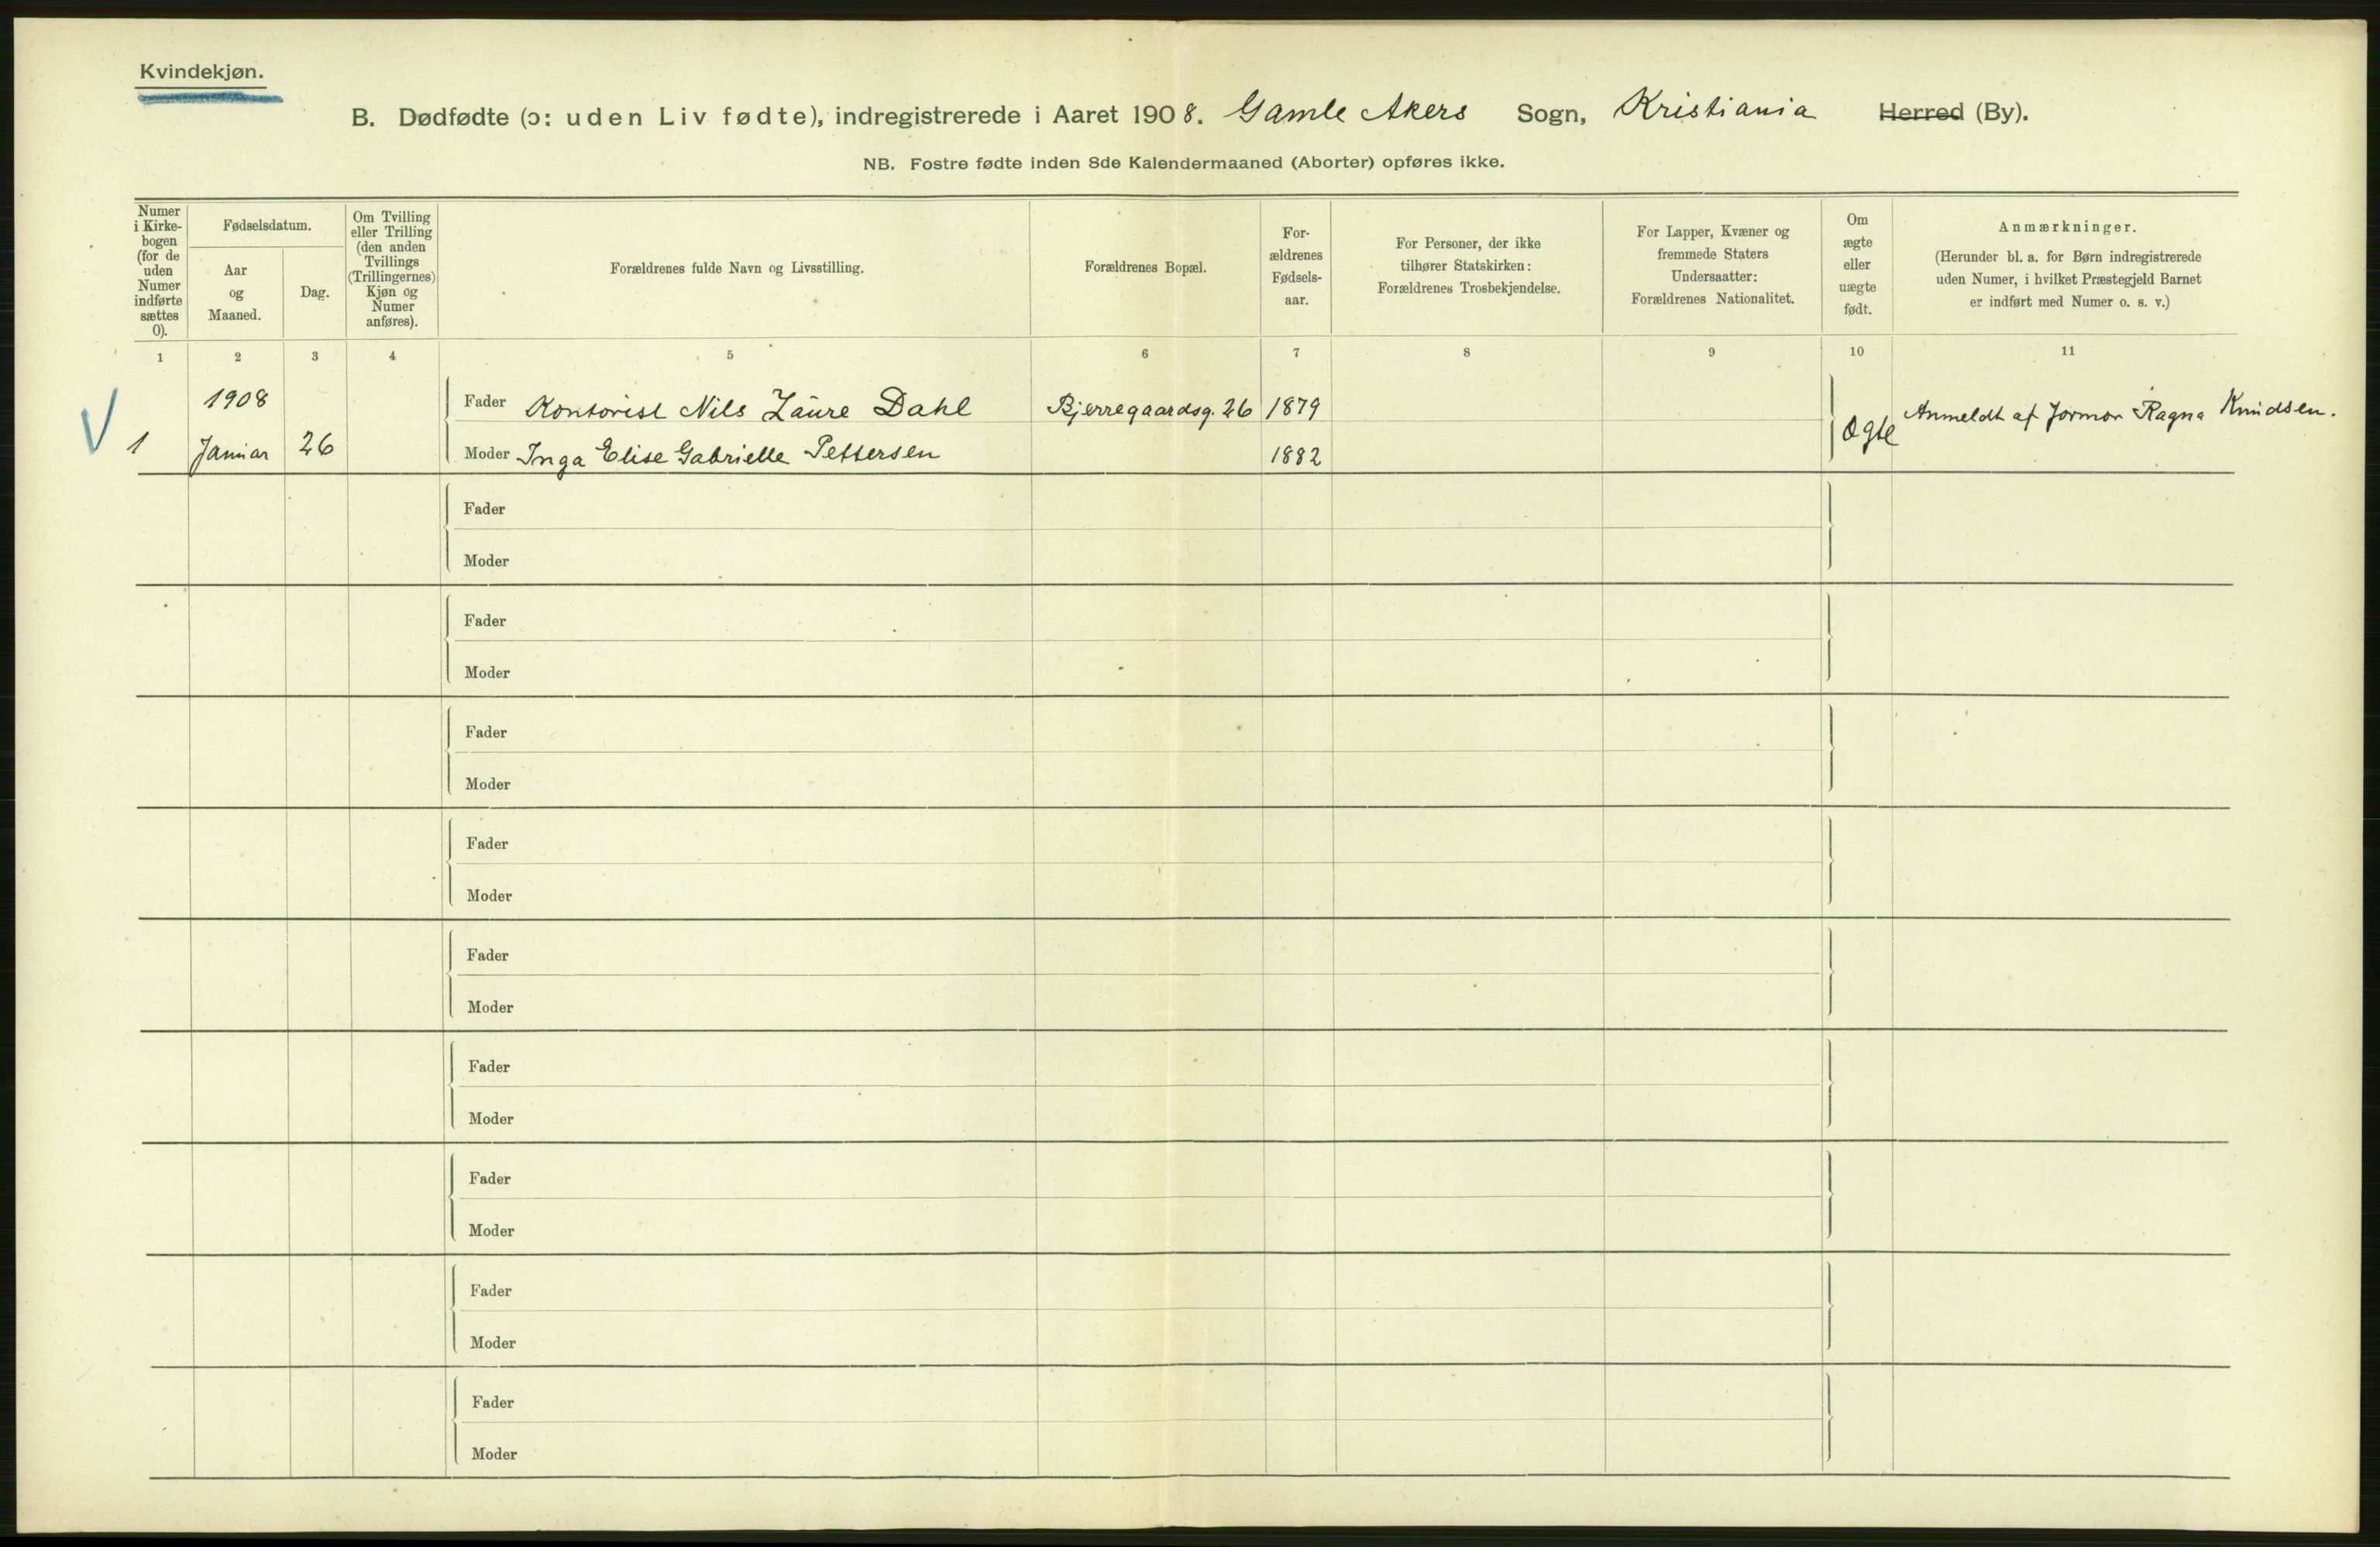 Kvindekjøn.
B. Dødfødte (ɔ: uden Liv fødte), indregistrerede i Aaret 1908. Gamle Akers Sogn, Kristiania Herred (By).
NB. Fostre fødte inden 8de Kalendermaaned (Aborter) opføres ikke.
Numer
i Kirke-
bogen
(for de
uden
Numer
indførte
sættes
0).
Fødselsdatum.
Aar
og
Maaned.
Dag.
Om Tvilling
eller Trilling
(den anden
Tvillings
(Trillingernes)
Kjøn og
Numer
anføres).
Forældrenes fulde Navn og Livsstilling.
Forældrenes Bopæl.
For-
ældrenes
Fødsels-
aar.
For Personer, der ikke
tilhører Statskirken:
Forældrenes Trosbekjendelse.
For Lapper, Kvæner og
fremmede Staters
Undersaatter:
Forældrenes Nationalitet.
Om
ægte
eller
uægte
født.
Anmærkninger.
(Herunder bl. a. for Børn indregistrerede
uden Numer, i hvilket Præstegjeld Barnet
er indført med Numer o. s. v.)
1 2 3 4 5 6 7 8 9 10 11
1908 Fader Kontorist Nils Dahl Bjerregaardsg. 26 1879 Anmeldt af Jormor Ragna Knudsen.
1 Januar 26 Moder Inga Elise Gabrielle Pettersen 1882 Ægte
Fader
Moder
Fader
Moder
Fader
Moder
Fader
Moder
Fader
Moder
Fader
Moder
Fader
Moder
Fader
Moder
Fader
Moder